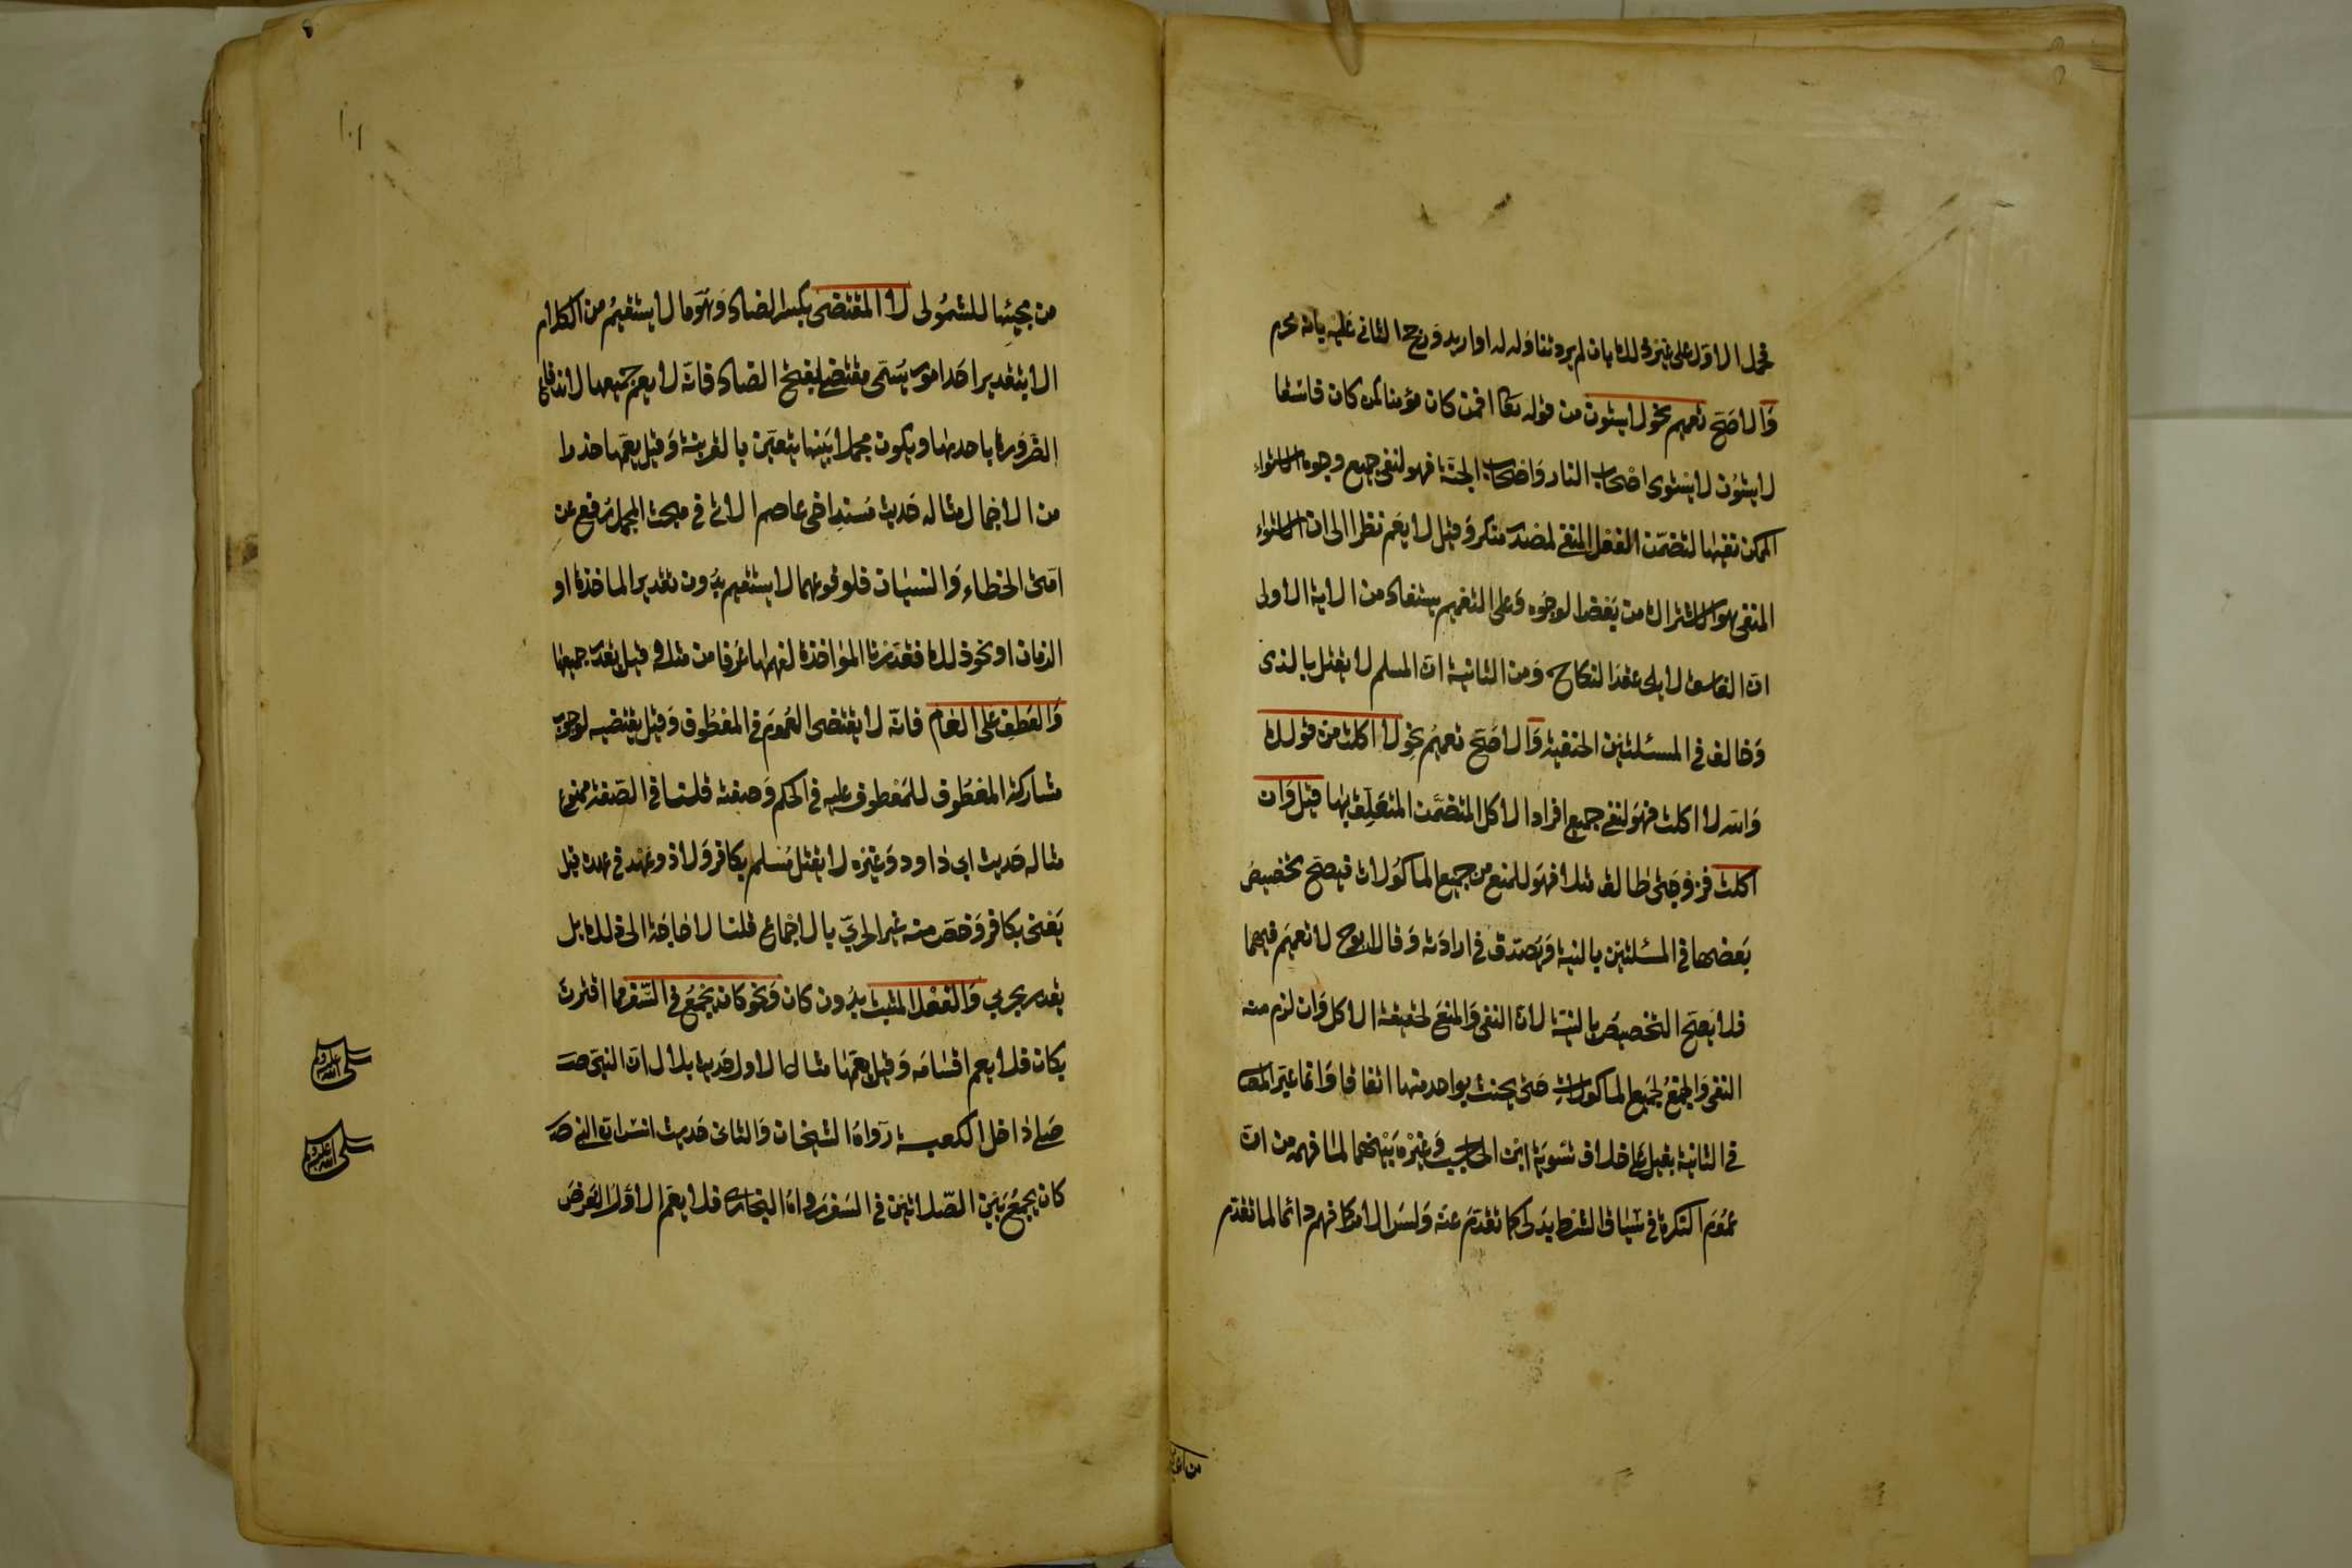 فحمل الاول على غير ذلك بان لم يرد تناوله له او اريد ورجح الثاني عليه بانه محرم
وَالاصَحّ تعميم نحو لا يستوون من قوله تعا افمن كان مؤمنا كمن كان فاسقا
لا يستوُن لا يستوى اصْحاب النار وَاصْحاب الجنّة فهو لنفى جميع وجوه الاستواء
الممكن نفيها لتضمّن الفعل المنفى لمصدر منكر وَقيل لا يعَم نظرا الى ان الاستواء
المنفى هو الاشتراك من بَعْض الوجوه وَعلى التعْميم يستفاد من الاية الاولى
ان الفاسق لا يلى عقد النكاح وَمن الثانية ان المسلم لا يقتل بالذى
وَخالف في المسئلتين الحنفية وَالاصَحّ تعميم نحو لا اكلت من قولك
وَاللّه لا اكلت فهوَ لنفى جميع افراد الاكل المتضمَّن المتعَلّق بها قيل وَان
اكلت فزوجَتى طالق مثلا فهوَ للمنع من جميع الماكوُلات فيصحّ تخصيصُ
بَعضها في المسئلتين بالنية وَيصَدق في ارادَته وَقال ابوح لا تعميَم فيهما
فلا يَصحّ التخصيصُ بالنيّة لانّ النفى وَالمنعَ لحقيقة الاكل وَان لزم منه
النفى وَالمنعُ لجميع الماكولات حَتى يحنث بواحد منها اتفاقا وَانما عبّر المص
في الثانية بقيل على خلاف تسَويَة ابن الحاجب وَغيْره بَيْنهما لما فهمه من انّ
عمُوَم النكرة في سيَاق الشرط بدلى كما تقدّم عنه وَليسَ الامر كما فهم دائما لما تقدّم
من مجيئها للشمُولى لا المقتضى بكسر الضاد وَهوَ ما لا يستقيمُ من الكلام
الا بتقدير احَد امور يُسَمّى مقتضى بفتح الضاد فانّه لا يعم جميعها لاندفاع
الضَرورة باحدها ويكون مجملا بَينها يتعيّن بالقرينة وَقيل يعمّها حذرا
من الاجمال مثاله حَديث مُسند اخى عاصم الاتى في مبحث المجمل رُفع عن
امّتى الخطاء وَالنسيان فلو قوعهما لا يستقيم بدُون تقدير الماخذة او
الزمان او نحو ذلك فقدّرنا المؤاخذة لفهمها عُرفا من مثله وقيل يقدّر جميعها
وَالعَطف على العام فانّه لا يقتضى العُموم في المعْطوُف وَقيل يقتضيه لوجوب
مشاركة المعطوُف للمَعْطوف عليه في الحكم وَصفته قلنا في الصّفة ممنوع
مثاله حَديث ابى دَاود وَغيْره لا يقتل مُسلم بكافر وَلا ذو عَهْد في عهده قيل
يَعْنى بكافر وَخصّ منه غير الحربىّ بالاجْماع قلنا لا حَاجَة الى ذلك بل
يقدر بحربي وَالفعْل المثبت بدُون كان وَنحو كان يجْمَعُ في السّفر مما اقترن
بكان فلا يعم اقسَامَه وَقيل يعَمّها مثال الاول حَديث بلال انّ النبى صـ
صَلى دَاخل الكعبة رَواهُ الشيخان وَالثانى حَديث انسَ انّ النبى صـ
كان يجمَعُ بَيْن الصّلاتيْن في السَفر رواه البخارى فلا يعمّ الاوّل الفرضَ
صلى الله عليه وسلم
صلى الله عليه وسلم